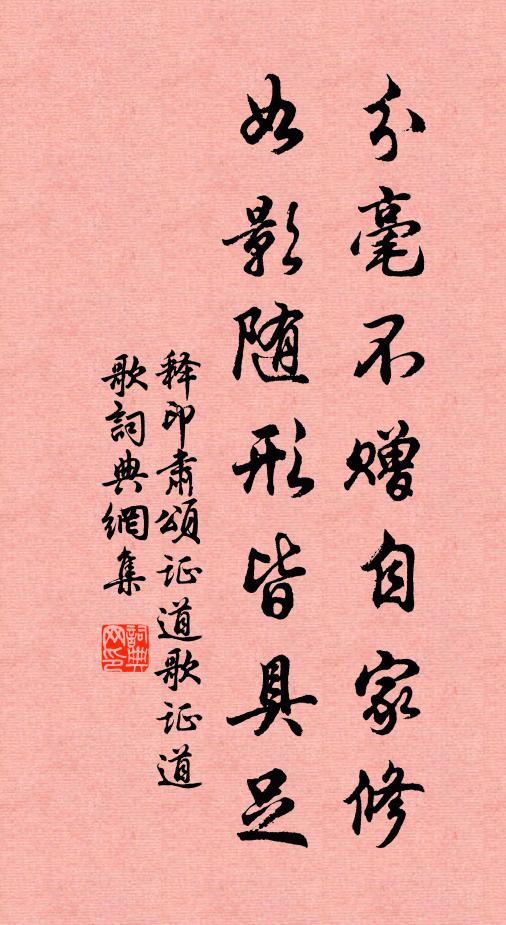 分毫不赠自家修
如影随形皆具足
释印肃颂证道歌证道
歌詞典網集
詞典网印